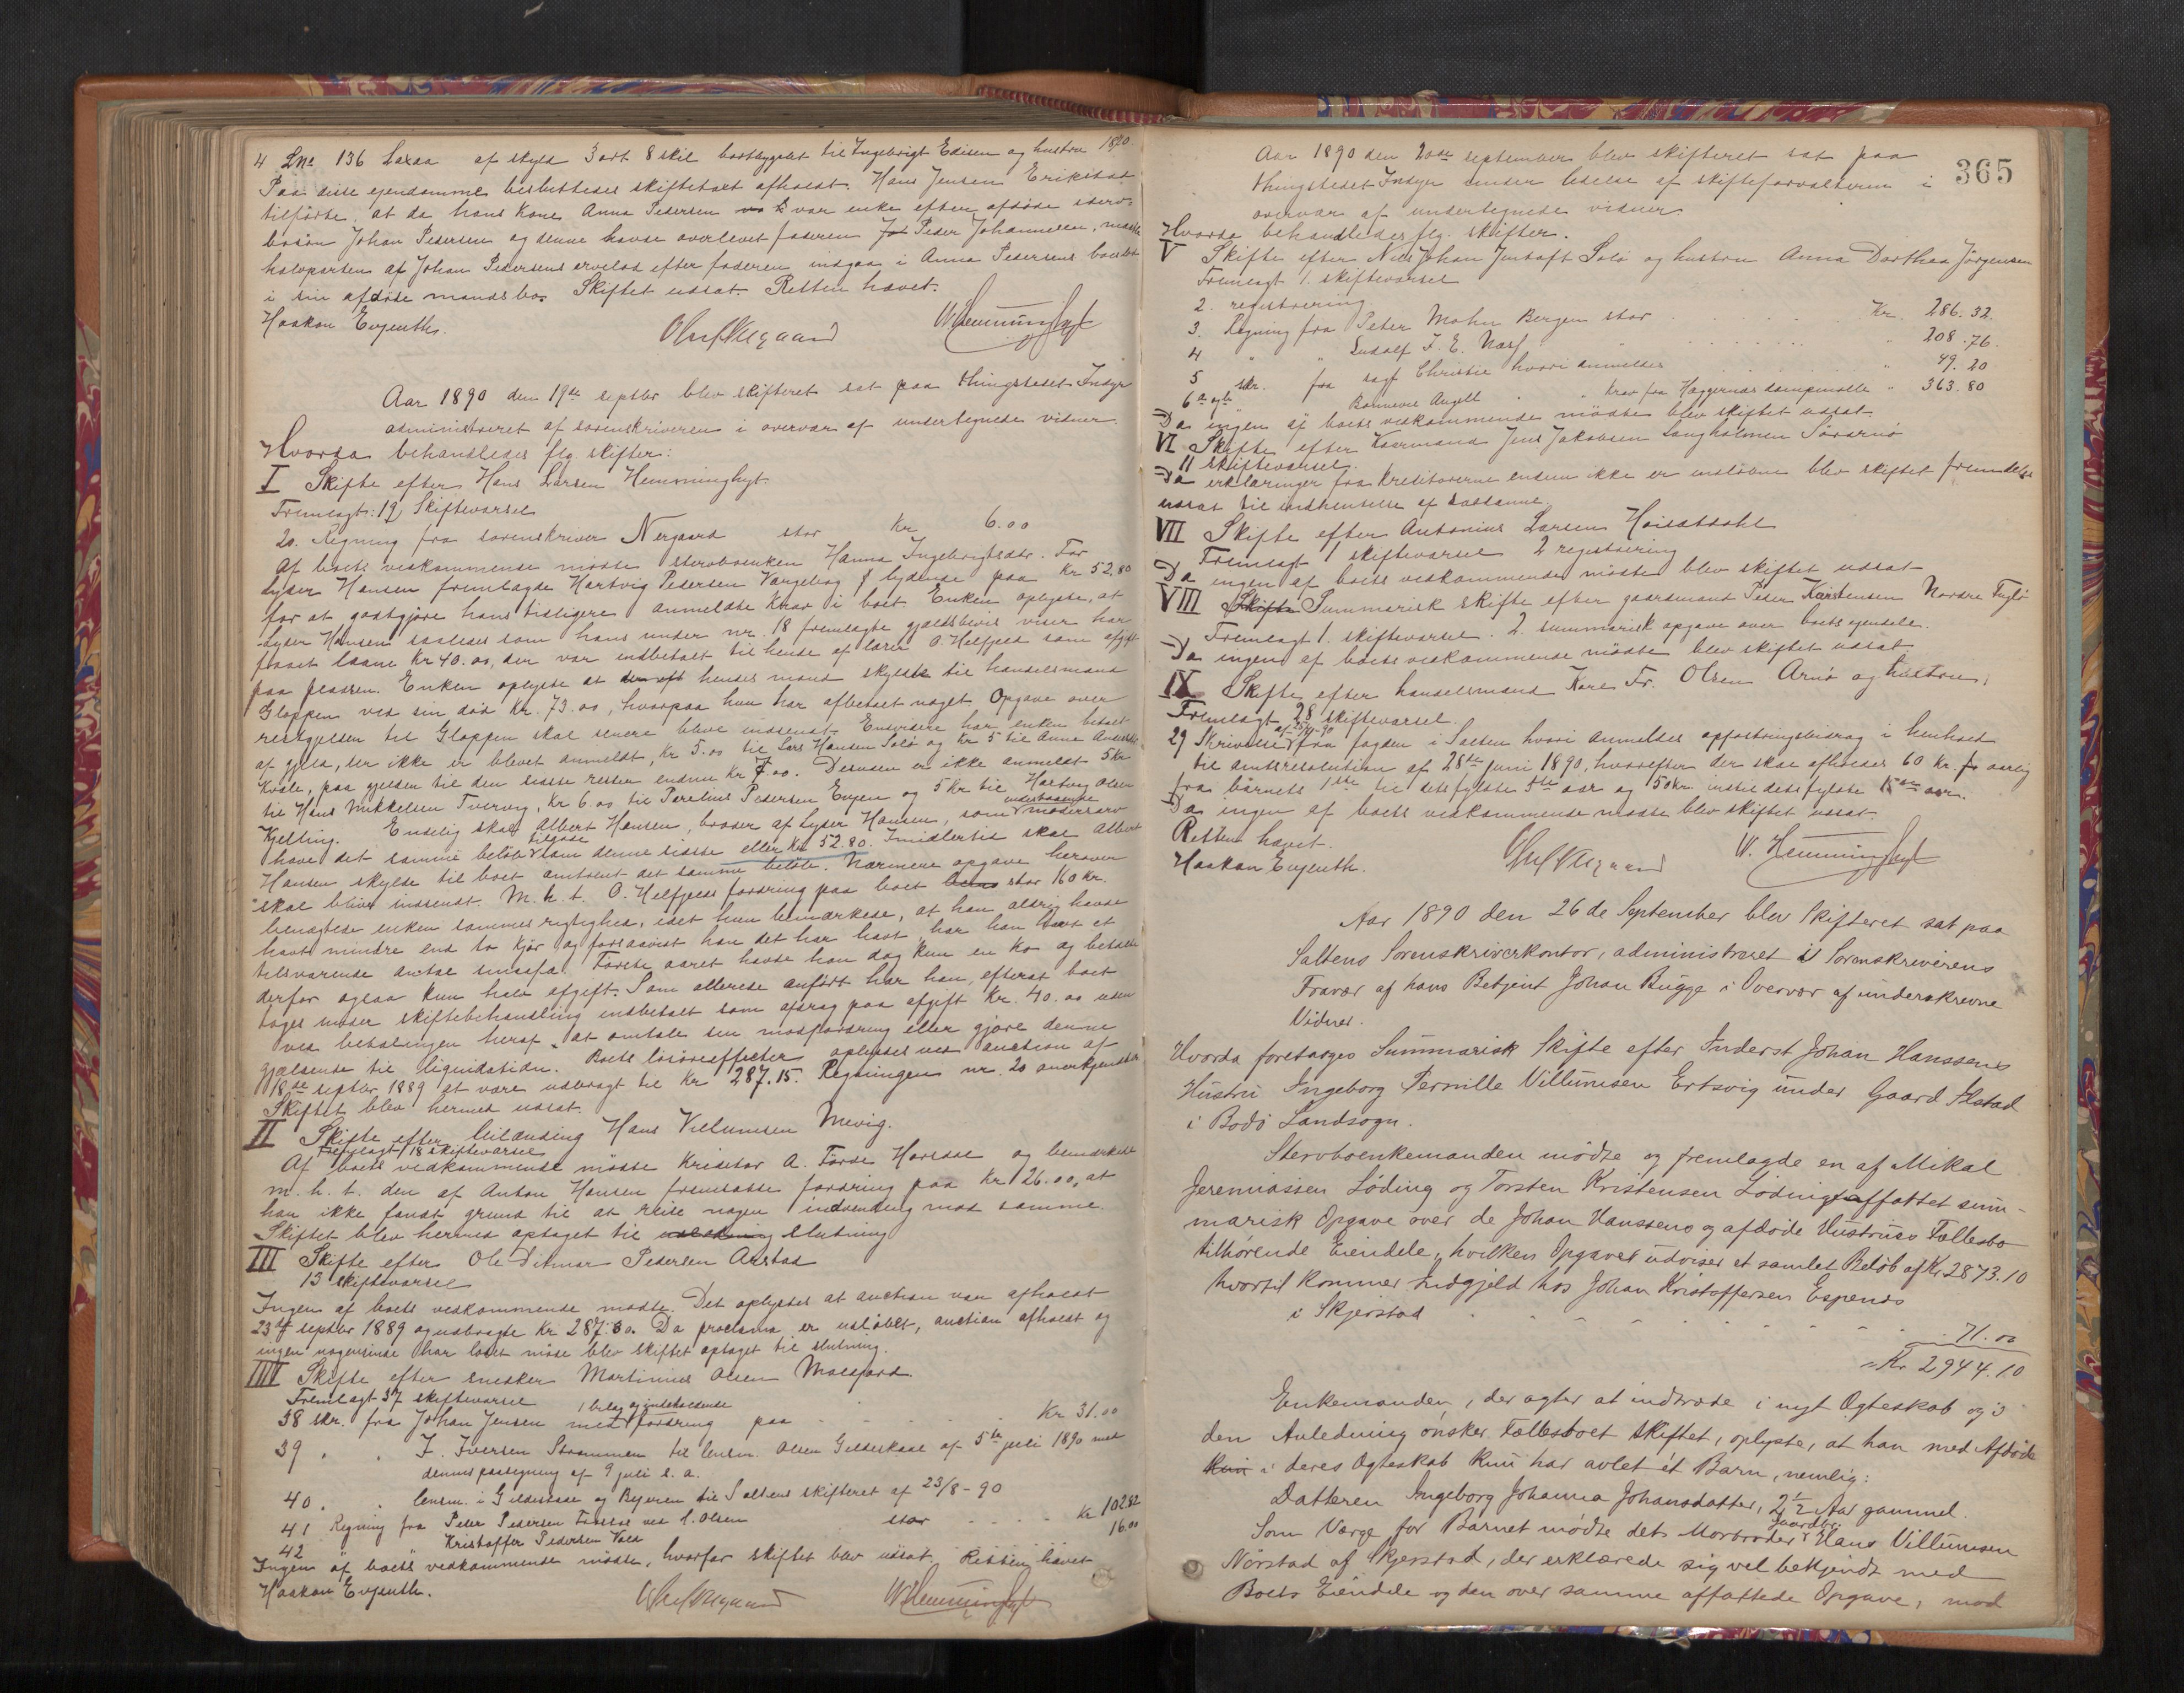 4 Lne 136 Laxaa af skyld 3 ort 8 skil bortbygslet til Ingebrigt Edisen og hustru 1890
Paa disse eiendomme besluttedes skiftetaxt afholdt. Hans Jensen Erikstad
tilførte, at da hans kone Anna Pedersen var enke efter afdøde stervbosøn
Johan Pedersen og denne havde overlevet faderen Peder Johannesen, maatte
halvparten af Johan Pedersens arvelod efter faderen indgaa i Anna Pedersens boeslod
i sin afdøde mands bo. Skiftet udsat. Retten hævet.
Haakon Evjenth.
Aar 1890 den 19de septbr blev skifteret sat paa thingstedet Indyr
administreret af sorenskriveren i overvær af undertegnede vidner
Hvorda behandledes flg. skifter:
I Skifte efter Hans Larsen Hemminghyt
Fremlagt: 19 Skiftevarsel
20. Regning fra sorenskriver Nergaard stor Kr 6.00
Af boets vedkommende mødte stervboenken Hanna Ingebrigtsdtr. For
Lyder Hansen fremlagde Hartvig Pedersen lydende paa Kr 52,80
for at godtgjøre hans tidligere anmeldte krav i boet. Enken oplyste, at
Lyder Hansen saaledes som hans under nr. 18 fremlagte gjældsbevis viser har
faaet laane Kr 40.00, der var indbetalt til hende af lærer O. Helfjeld som afgift
paa pladsen. Enken oplyste at hendes mand skyldte til handelsmand
Gloppen ved sin død Kr. 73.00, hvorpaa hun har afbetalt noget. Opgave over
restgjelden til Gloppen skal senere blive indsendt. Endvidere har enken betalt
af gjeld, der ikke er blevet anmeldt, Kr 5.00 til Lars Hansen Solø og Kr 5 til Anne
Kvale, paa gjelden til den sidste rester endnu Kr 7.00. Desuden er ikke anmeldt 5 Kr
til Hans Mikkelsen Tvervig, Kr 6.00 til Parelius Pedersen Evjen og 5 Kr til Hartvig Olsen
Kjelling. Endelig skal Albert Hansen, broder af Lyder Hansen, som indestaaende mødrearv
have det samme beløb tilgode som denne sidste eller Kr 52.80. Imidlertid skal Albert
Hansen skylde til boet omtrent det samme beløb. Nærmere opgave herover
skal blive indsendt. M. h. t. O. Helfjelds fordring paa boet stor 160 Kr.
benægtede enken sammes rigtighed, idet hun bemærkede, at han aldrig havde
havt mindre end to kjør og forsaavidt han det har havt, har han havt et
tilsvarende antal smaafæ. Første aaret havde han dog kun en ko og betalte
derfor ogsaa kun halv afgift. Som allerede anført har han, efterat boet
toges under skiftebehandling indbetalt som afdrag paa afgift Kr. 40.00 uden
ved betalingen heraf at omtale sin modfordring eller gjøre denne
gjældende til liquidation. Boets løsøreeffecter oplystes ved auction af
18de septbr 1889 at være udbragt til Kr 287.15. Regningen nr. 20 anerkjendtes
Skiftet blev hermed udsat.
II Skifte efter leilænding Hans Villumsen Mevig.
Fremlagt 18 skiftevarsel
Af boets vedkommende mødte kreditor A. Førde Haredal og bemærkede
m. h. t. den af Anton Hansen fremsatte fordring paa Kr 26.00, at
han ikke fandt grund til at reise nogen indvending mod samme.
Skiftet blev hermed optaget til slutning
III Skifte efter Ole Ditmar Pedersen Arstad
13 skiftevarsel
Ingen af boets vedkommende mødte. Det oplystes at auction var afholdt
23de septbr 1889 og udbragte Kr 287.60. Da proclama er udløbet, auction afholdt og
ingen nogensinde har ladet møde blev skiftet optaget til slutning.
IIII Skifte efter snedker Martinus Olsen
Fremlagt 37 skiftevarsel
38 skr. fra Johan Jensen med 1 bilag og indeholdende fordring paa Kr 31.00
39 " " J. Iversen Strømmen til lensm. Olsen Gildeskaal af 5te juli 1890 med
dennes paategning af 9 juli s. a.
40. " lensm. i Gildeskaal og Beieren til Saltens skifteret af 23/8-90
41 Regning fra Peter Pedersen ved C. Olsen stor Kr 102.82
42 Kristoffer Pedersen Vold 16.00
Ingen af boets vedkommende mødte, hvorfor skiftet blev udsat. Retten hævet
Haakon Evjenth.
365
Aar 1890 den 20de september blev skifteret sat paa
thingstedet Indyr under ledelse af skifteforvalteren i
overvær af undertegnede vidner
Hvorda behandledes flg. skifter.
V Skifte efter Nils Johan Jentoft Solø og hustru Anna Dorthea Jørgensen
Fremlagt 1. skiftevarsel
2. registrering
3. Regning fra Peter Mohn Bergen stor Kr. 286.32.
4 " " Ludolf J. E. " 208.76.
5 skr. fra sagf Christie hvori anmeldes " 49.20
6 a og b " Bonnevie Angell " " krav fra Haggernæs dampmølle " 363.80
Da ingen af boets vedkommende mødte blev skiftet udsat.
VI Skifte efter kaarmand Jens Jakobsen Langholmen Sørarnø
11 skiftevarsel.
Da erklæringer fra kreditorerne endnu ikke er indløbne blev skiftet fremdeles
udsat til indhentelse af saadanne.
VII Skifte efter Antonius Larsen
Fremlagt 1 skiftevarsel 2 registrering
Da ingen af boets vedkommende mødte blev skiftet udsat
VIII Skifte Summarisk skifte efter gaardmand Peder Karstensen Nordre Fuglø
Fremlagt 1. skiftevarsel. 2. summarisk opgave over boets eiendele.
Da ingen af boets vedkommende mødte blev skiftet udsat
IX Skifte efter handelsmand Kare Fr. Olsen Arnø og hustru.
Fremlagt 28 skiftevarsel.
29 Skrivelse fra fogden i Salten hvori anmeldes opfostringsbidrag i henhold
til amtsresolution af 28de juni 1890, hvorefter der skal afholdes 60 Kr. aarlig
fra barnets 1ste til dets fyldte 5te aar og 50 kr. indtil dets fyldte 15de aar.
Da ingen af boets vedkommende mødte blev skiftet udsat.
Retten hævet.
Haakon Evjenth. W. Hemminghyt
Aar 1890 den 26de September blev Skifteret sat paa
Saltens Sorenskriverkontor, administreret i Sorenskriverens
Fravær af hans Betjent Johan Bugge i Overvær af underskrevne
Vidner.
Hvorda foretages Summarisk Skifte efter Inderst Johan Hanssens
Hustru Ingeborg Pernille Villumsen Ertsvig under Gaard Alstad
i Bodø Landsogn.
Stervboenkemanden mødte og fremlagde en af Mikal
Jeremiassen Løding og Torsten Kristensen Løding affattet sum-
marisk Opgave over de Johan Hanssens og afdøde Hustrus Fællesbo
tilhørende Eiendele, hvilken Opgave udviser et samlet Beløb af Kr 2873.10
hvortil kommer Indgjeld hos Johan Kristoffersen Espenæs
i Skjerstad - - - - - - - 71.00
Kr 2944.10
Enkemanden, der agter at indtræde i nyt Ægteskab og i
den Anledning ønsker Fællesboet skiftet, oplyste, at han med Afdøde
kun i deres Ægteskab kun har avlet ét Barn, nemlig:
Datteren Ingeborg Johanna Johansdatter, 2½ Aar gammel.
Som Værge for Barnet mødte dets Morbroder Gaardbr. Hans Villumsen
Nørstad af Skjerstad, der erklærede sig vel bekjendt med
Boets Eiendele og den over samme affattede Opgave, mod